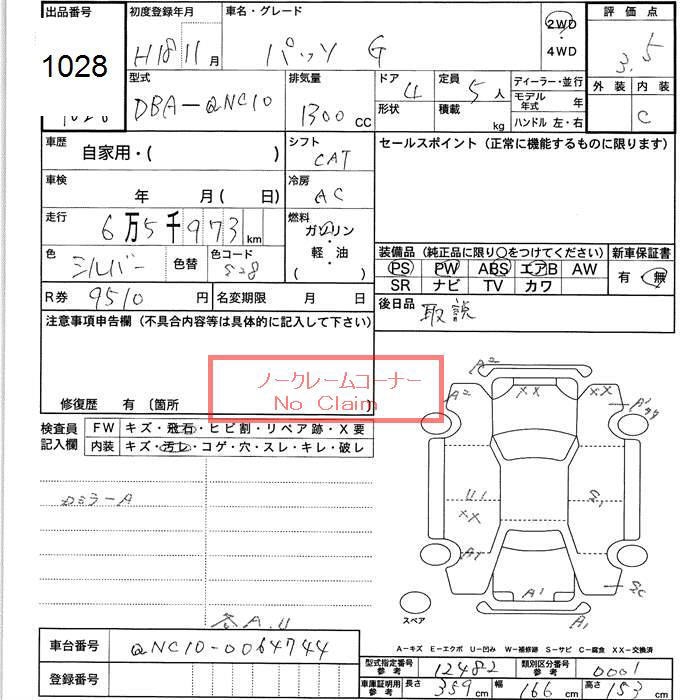 出品番号
1028
初度登録年月
H18 11月
車名・グレード
パッソ G
2WD
・
4WD
評価点
3.5
外装 内装
C
型式
DBA-QNC10
排気量
1300 CC
ドア
4
形状
定員
5人
積載
kg
ディーラー・並行
モデル年式 年
ハンドル 左・右
車歴
自家用・( )
シフト
CAT
セールスポイント(正常に機能するものに限ります)
車検
年 月(日)
冷房
AC
走行
6万5千973km
燃料
ガソリン
・
軽・油
( )
色
シルバー
色替
色コード
S28
装備品(純正品に限り○をつけてください)
PS PW ABS エアB AW
SR ナビ TV カワ
新車保証書
有 無
R券 9510円
名変期限 月 日
後日品
取説
注意事項申告欄(不具合内容等は具体的に記入して下さい)
ノークレームコーナー
No Claim
修復歴 有 〔箇所
検査員記入欄
FW キズ・飛石・ヒビ割・リペア跡・X要
内装 キズ・汚レ・コゲ・穴・スレ・キレ・破レ
カミラーA
各A.U
A2
A2
XX
XX
A1
U1
XX
S1
A1
SC
A1
A1
スペア
A-キズ E-エクボ U-凹み W-補修跡 S-サビ C-腐食 XX-交換済
車台番号
QNC10-0064744
登録番号
型式指定番号 参考
12482
類別区分番号 参考
0001
車庫証明用 参考
長さ 359cm
幅 166cm
高さ 153cm